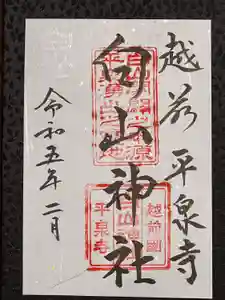 越前 平泉寺
白山神社
令和五年二月
越前國
平泉寺